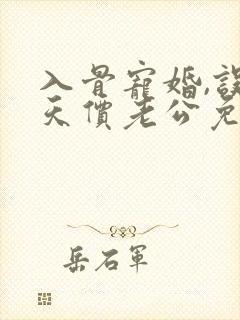 入骨寵婚,誤
天價老公免
岳石軍